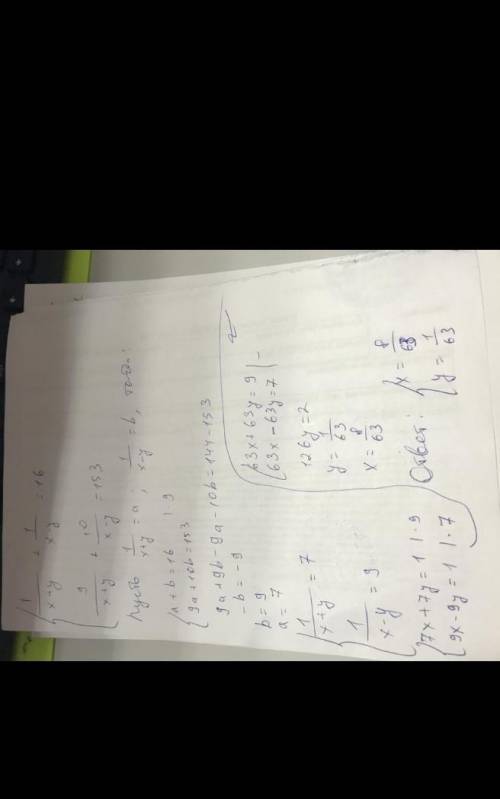 { 1/(x+y) + 1/(x-y) = 16
9/(x+y) + 10/(x-y) = 153
Пусть 1/(x+y) = a ; 1/(x-y) = b, тогда:
{ a+b=16 |·9
9a+10b=153
9a+9b-9a-10b=144-153
-b=-9
b=9
a=7
{ 1/(x+y) = 7
1/(x-y) = 9
{ 7x+7y=1 |·9
9x-9y=1 |·7
{ 63x+63y=9 | -
63x-63y=7
126y=2
y=1/63
x=8/63
Ответ: { x=8/63
y=1/63